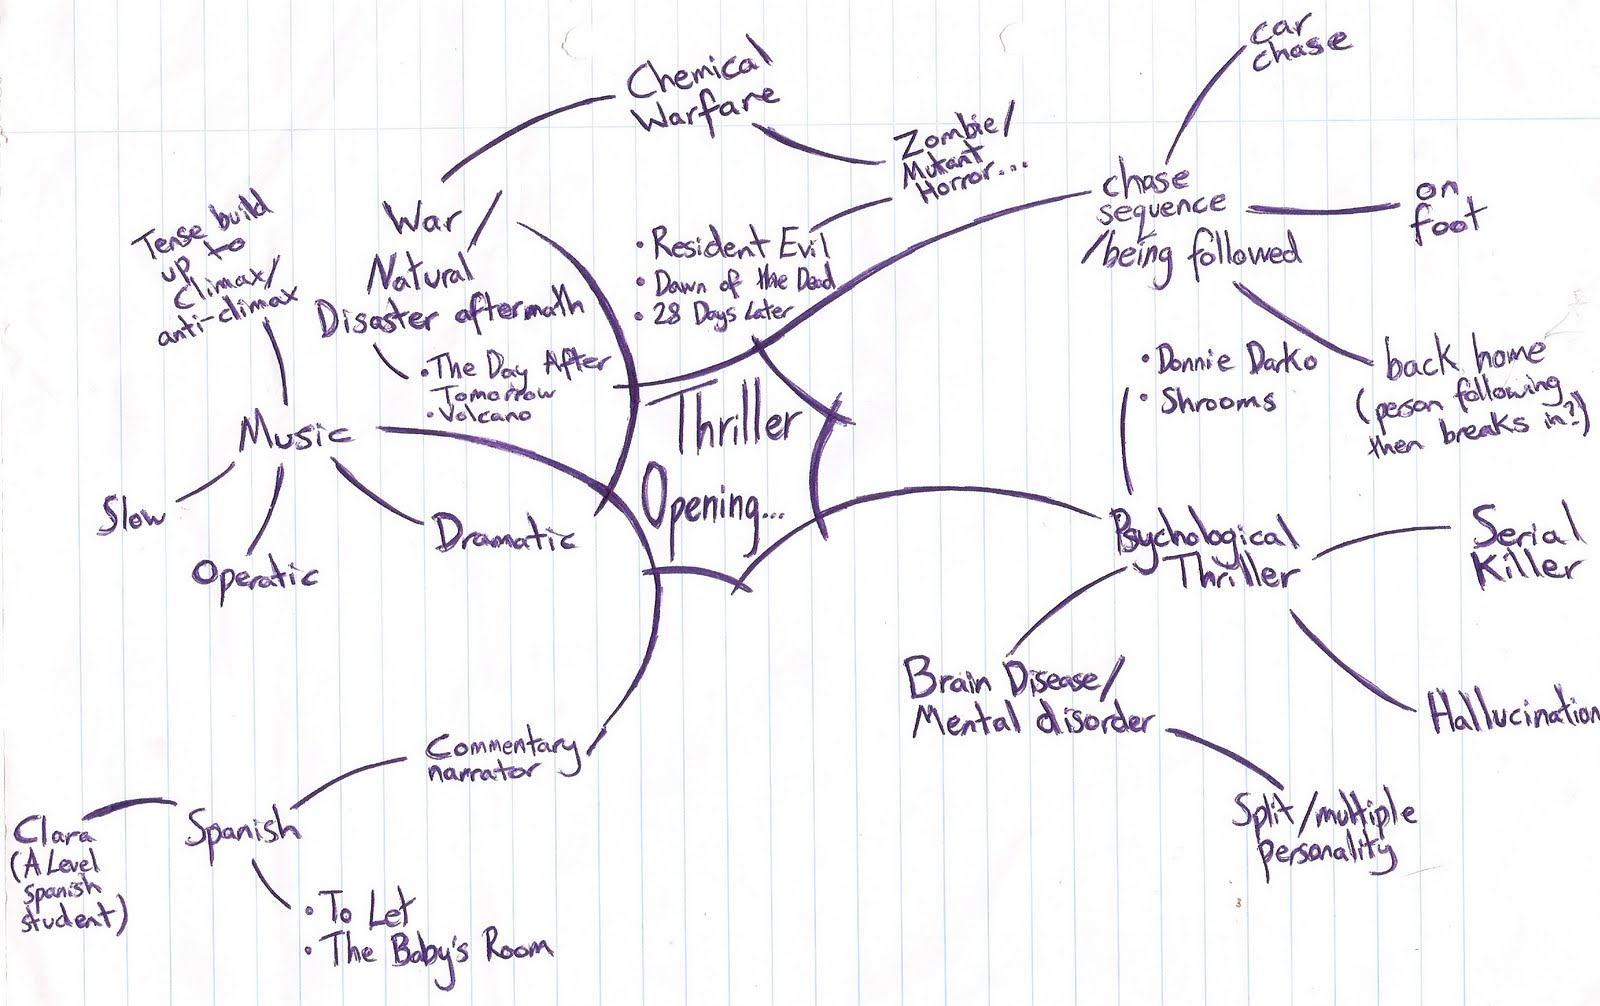 Thriller
Opening...
War /
Natural
Disaster aftermath
• The Day After
Tomorrow
• Volcano
Chemical
Warfare
Zombie/
Mutant
Horror...
• Resident Evil
• Dawn of the Dead
• 28 Days Later
chase
sequence
/being followed
car
chase
on
foot
back home
(person following
then breaks in?)
Psychological
Thriller
• Donnie Darko
• Shrooms
Serial
Killer
Hallucination
Brain Disease/
Mental disorder
Split/multiple
personality
Commentary
narrator
Spanish
Clara
(A Level
Spanish
student)
• To Let
• The Baby's Room
Music
Tense build
up to
Climax/
anti-climax
Slow
Operatic
Dramatic
3